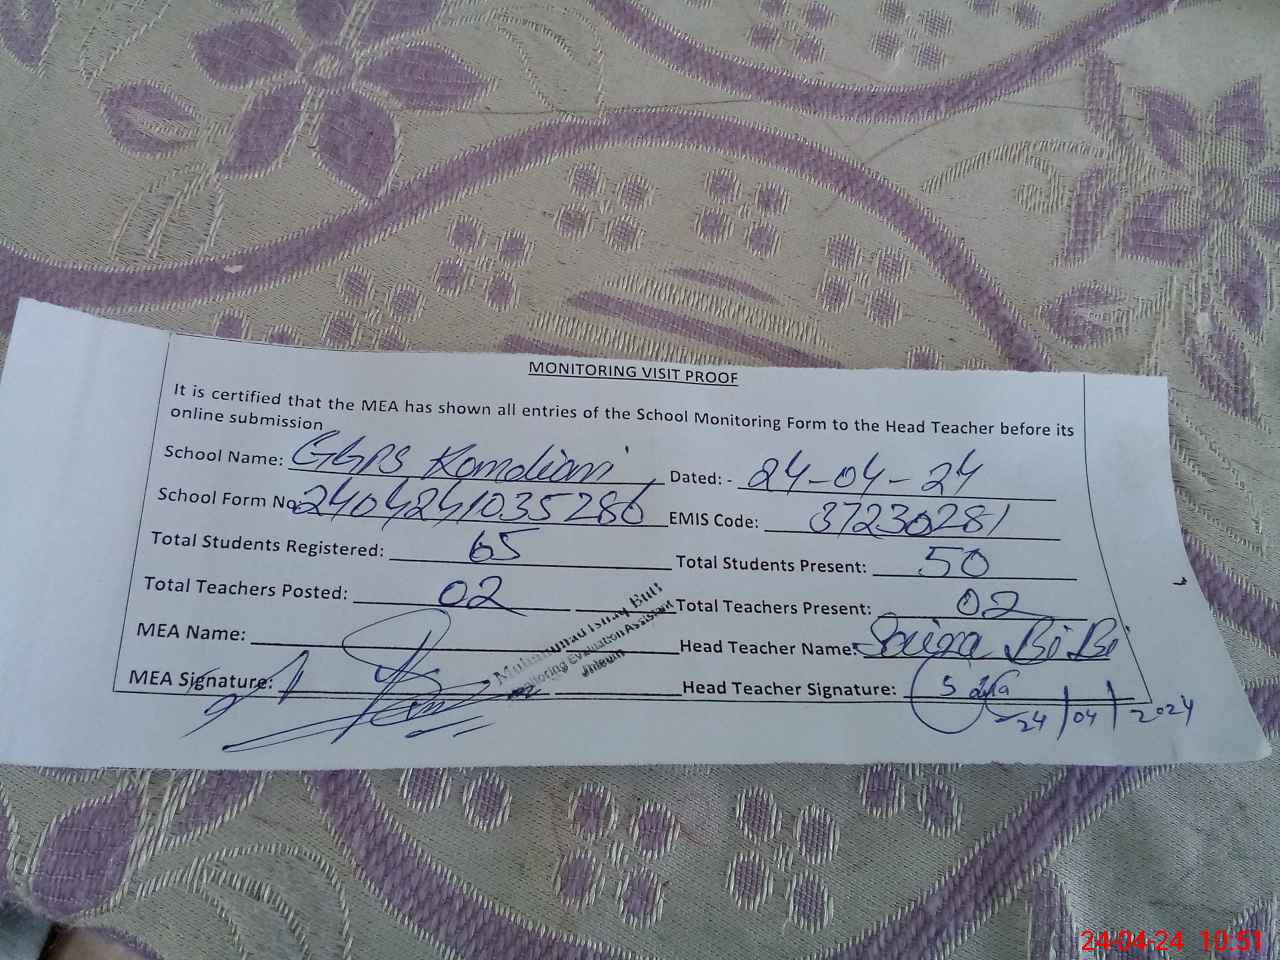 MONITORING VISIT PROOF
It is certified that the MEA has shown all entries of the School Monitoring Form to the Head Teacher before its
online submission
School Name: GGPS Kamdiani Dated: - 24-04-24
School Form No 2404241035286 EMIS Code: 37230281
Total Students Registered: 65 Total Students Present: 50
Total Teachers Posted: 02 Total Teachers Present: 02
MEA Name: Head Teacher Name: Bi Bi
Muhammad Butt
Monitoring Evaluation Assistant
Jhelum
MEA Signature: Head Teacher Signature:
24/04/2024
24-04-24 10:51